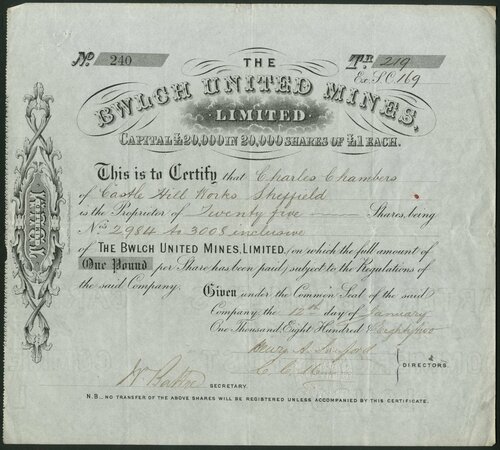 No. 240
Tr. 219
Ex. SC 169
THE
BWLCH UNITED MINES,
LIMITED
CAPITAL £20,000 IN 20,000 SHARES OF £1 EACH.
This is to Certify that Charles Chambers
of Castle Hill Works Sheffield
is the Proprietor of Twenty five Shares, being
Nos. 2984 to 3008 inclusive
of THE BWLCH UNITED MINES, LIMITED, on which the full amount of
One Pound per Share has been paid, subject to the Regulations of
the said Company.
Given under the Common Seal of the said
Company, the 12th day of January
One Thousand Eight Hundred & Eighty two
DIRECTORS.
SECRETARY.
N.B. NO TRANSFER OF THE ABOVE SHARES WILL BE REGISTERED UNLESS ACCOMPANIED BY THIS CERTIFICATE.